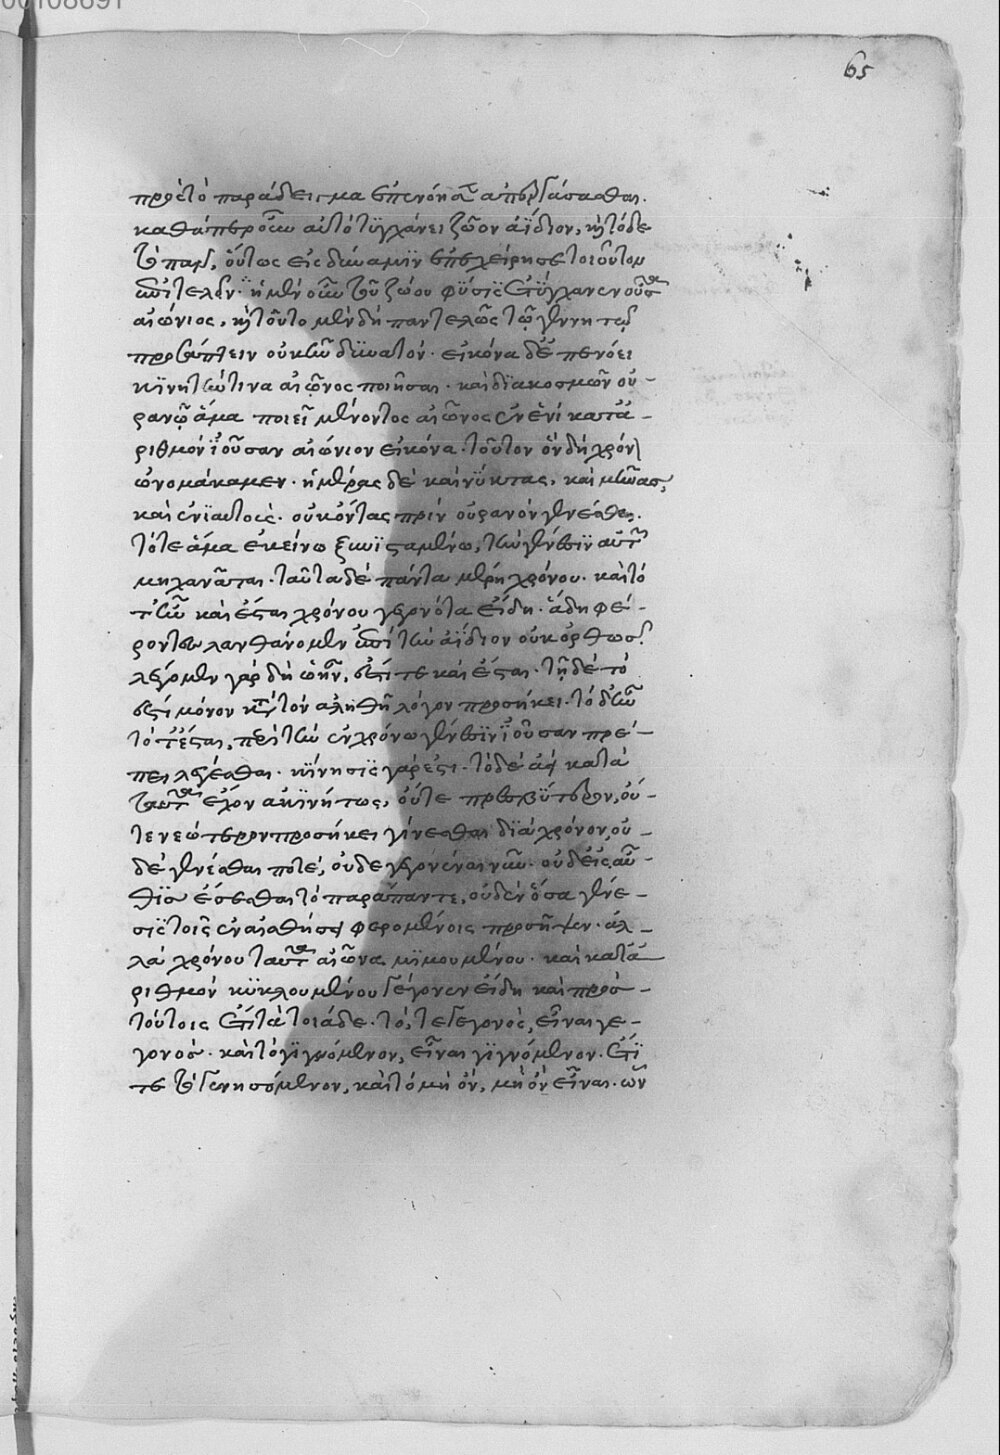 00108691
65
πρὸς τὸ παράδειγμα ἐπενόησεν ἀπεργάσασθαι.
καθάπερ οὖν αὐτὸ τυγχάνει ζῶον ἀΐδιον, καὶ τόδε
τὸ πᾶν, οὕτως εἰς δύναμιν ἐπεχείρησε τοιοῦτον
ἀποτελεῖν. ἡ μὲν οὖν τοῦ ζώου φύσις ἐτύγχανεν οὖσα
αἰώνιος, καὶ τοῦτο μὲν δὴ παντελῶς τῷ γεννητῷ
προσάπτειν οὐκ ἦν δυνατόν. εἰκόνα δ' ἐπενόει
κινητήν τινα αἰῶνος ποιῆσαι. καὶ διακοσμῶν οὐ-
ρανῷ ἅμα ποιεῖ μένοντος αἰῶνος ἐν ἑνὶ κατἀ-
ριθμὸν ἰοῦσαν αἰώνιον εἰκόνα. τοῦτον ὃν δὴ χρόνον
ὠνομάκαμεν. ἡμέρας δὲ καὶ νύκτας, καὶ μῆνας,
καὶ ἐνιαυτοὺς. οὐκ ὄντας πρὶν οὐρανὸν γενέσθαι.
τότε ἅμα ἐκείνω ξυνισταμένω, τὴν γένεσιν αὐτῶν
μηχανᾶται. ταῦτα δὲ πάντα μέρη χρόνου. καὶ τό
τ' ἦν καὶ ἔσται χρόνου γεγονότα εἴδη. ἃ δὴ φέ-
ροντες λανθάνομεν ἐπὶ τὴν ἀΐδιον οὐκ ὀρθῶς.
λέγομεν γὰρ δὴ ὡς ἦν, ἔστί τε καὶ ἔσται. τῇ δὲ τό
ἔστι μόνον κατὰ τὸν ἀληθῆ λόγον προσήκει. τὸ δ' ἦν
τό τ' ἔσται, περὶ τὴν ἐν χρόνω γένεσιν ἰοῦσαν πρέ-
πει λέγεσθαι. κίνησις γάρ ἐστι. τὸ δὲ ἀεὶ κατὰ
ταυτὰ ἔχον ἀκινήτως, οὔτε πρεσβύτερον, οὔ-
τε νεώτερον προσήκει γίνεσθαι διὰ χρόνον, οὐ-
δὲ γενέσθαι ποτέ, οὐδὲ γεγονέναι νῦν. οὐδ' εἰς αὖ-
θις ἔσεσθαι τὸ παράπαντε, οὐδὲν ὅσα γένε-
σις τοῖς ἐν αἰσθήσει φερομένοις προσῆψεν. ἀλ-
λὰ χρόνου ταῦτα αἰῶνα μιμουμένου. καὶ κατἀ-
ριθμὸν κυκλουμένου γέγονεν εἴδη καὶ πρὸς-
τούτοις ἔτι τὰ τοιάδε. τό, τε γεγονός, εἶναι γε-
γονός. καὶ τὸ γιγνόμενον, εἶναι γιγνόμενον. ἔτι
τε τὸ γενησόμενον, καὶ τὸ μὴ ὄν, μὴ ὂν εἶναι. ὧν